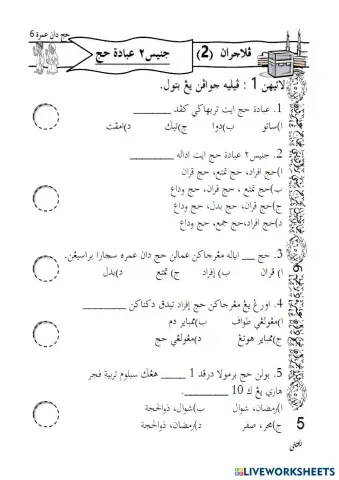 حج دان عمرة 6
ڤلاجرن (2)
جنيس٢ عبادة حج
لاتيهن 1 : ڤيليه جواڤن يڠ بتول.
1. عبادة حج ايت تربهاݢي كڤد ________
ا)ساتو ب)دوا ج)تيݢ د)امڤت
2. جنيس٢ عبادة حج ايت اداله ________
ا)حج افراد، حج تمتع، حج قران
ب)حج تمتع ، حج قران، حج وداع
ج)حج قران، حج بدل، حج وداع
د)حج افراد،حج جمع، حج وداع
3. حج ___ اياله مڠرجاكن عمالن حج دان عمره سچارا برأسيڠن.
ا) قران ب) إفراد ج) تمتع د)بدل
4. اورڠ يڠ مڠرجاكن حج إفراد تيدق دكناكن ________
ا)مڠولڠي طواف ب)ممباير دم
ج)ممباير هوتڠ د)مڠولڠي حج
5. بولن حج برمولا درڤد 1 _____ هڠݢ سبلوم تربية فجر
هاري يڠ ك 10 ________.
ا)رمضان، شوال ب)شوال، ذوالحجة
ج)محرم، صفر د)رمضان، ذوالحجة
5
LIVEWORKSHEETS